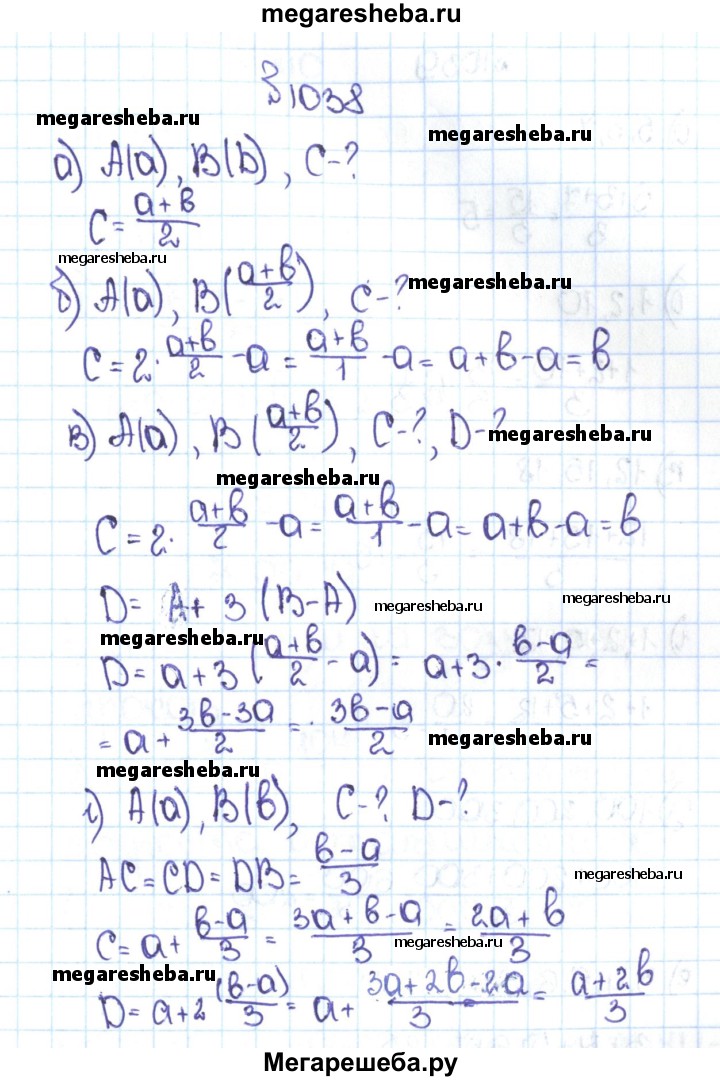 megaresheba.ru
№1038
megaresheba.ru
megaresheba.ru
а) A(a), B(b), C-?
C = (a+b)/2
megaresheba.ru
б) A(a), B((a+b)/2), C-?
megaresheba.ru
C = 2·(a+b)/2 - a = (a+b)/1 - a = a+b-a = b
в) A(a), B((a+b)/2), C-?, D-?
megaresheba.ru
megaresheba.ru
C = 2·(a+b)/2 - a = (a+b)/1 - a = a+b-a = b
D = A + 3 (B-A)
megaresheba.ru
megaresheba.ru
megaresheba.ru
D = a+3 ((a+b)/2 - a) = a+3·(b-a)/2 =
= a + (3b-3a)/2 = · (3b-a)/2
megaresheba.ru
megaresheba.ru
г) A(a), B(b), C-? D-?
AC = CD = DB = (b-a)/3
megaresheba.ru
C = a + (b-a)/3 = (3a+b-a)/3 = (2a+b)/3
megaresheba.ru
megaresheba.ru
D = a+2 (b-a)/3 = a + (3a+2b-2a)/3 = (a+2b)/3
Мегарешеба.ру